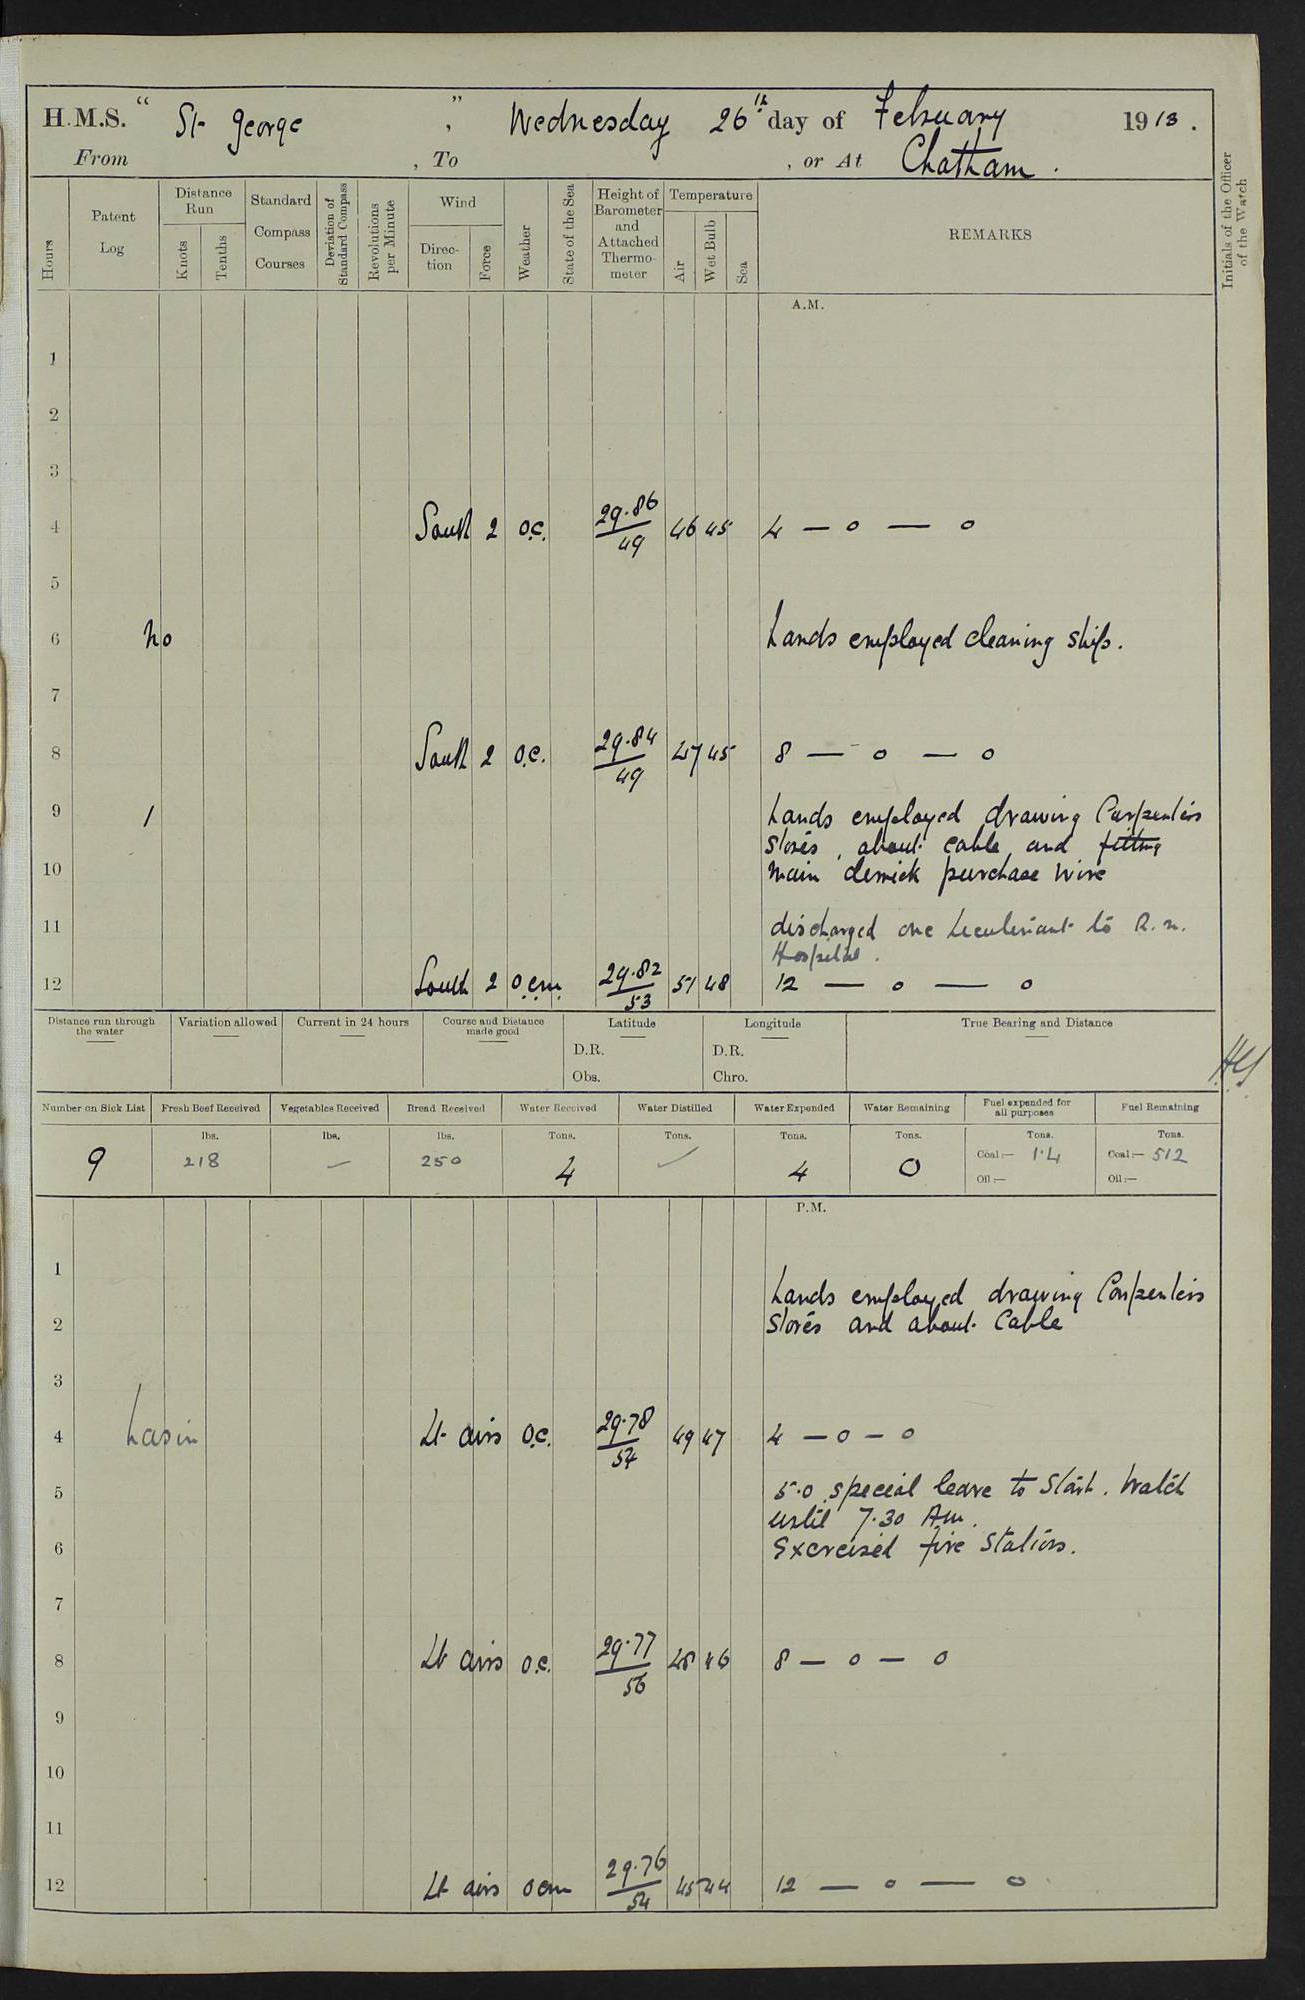 H.M.S. "St George", Wednesday 26th day of February 1913.
From , To , or At Chatham.
Hours
Patent Log
Distance Run
Knots
Tenths
Standard Compass Courses
Deviation of Standard Compass
Revolutions per Minute
Wind
Direction
Force
Weather
State of the Sea
Height of Barometer and Attached Thermometer
Temperature
Air
Wet Bulb
Sea
REMARKS
Initials of the Officer of the Watch
A.M.
1
2
3
4 South 2 o.c. 29.86/49 46 45 4 — o — o
5
6 No Hands employed cleaning ship.
7
8 South 2 o.c. 29.84/49 47 45 8 — o — o
9 1 Hands employed drawing Carpenters
stores, about cable, and fitting
10 main derrick purchase wire
11 discharged one Lieutenant to R.N.
Hospital.
12 South 2 o.c.m. 29.82/53 51 48 12 — o — o
Distance run through the water
Variation allowed
Current in 24 hours
Course and Distance made good
Latitude
D.R.
Obs.
Longitude
D.R.
Chro.
True Bearing and Distance
Number on Sick List
Fresh Beef Received
Vegetables Received
Bread Received
Water Received
Water Distilled
Water Expended
Water Remaining
Fuel expended for all purposes
Fuel Remaining
lbs. lbs. lbs. Tons. Tons. Tons. Tons. Tons. Tons.
9 218 — 250 4 ✓ 4 0 Coal:— 1.4 Coal:— 512
Oil:— Oil:—
P.M.
1 Hands employed drawing Carpenters
2 stores and about cable
3
4 basin Lt airs o.c. 29.78/54 49 47 4 — o — o
5 5.0 special leave to Starb. Watch
until 7.30 Am.
6 Exercised fire stations.
7
8 Lt airs o.c. 29.77/56 48 46 8 — o — o
9
10
11
12 Lt airs ocm 29.76/54 45 44 12 — o — o